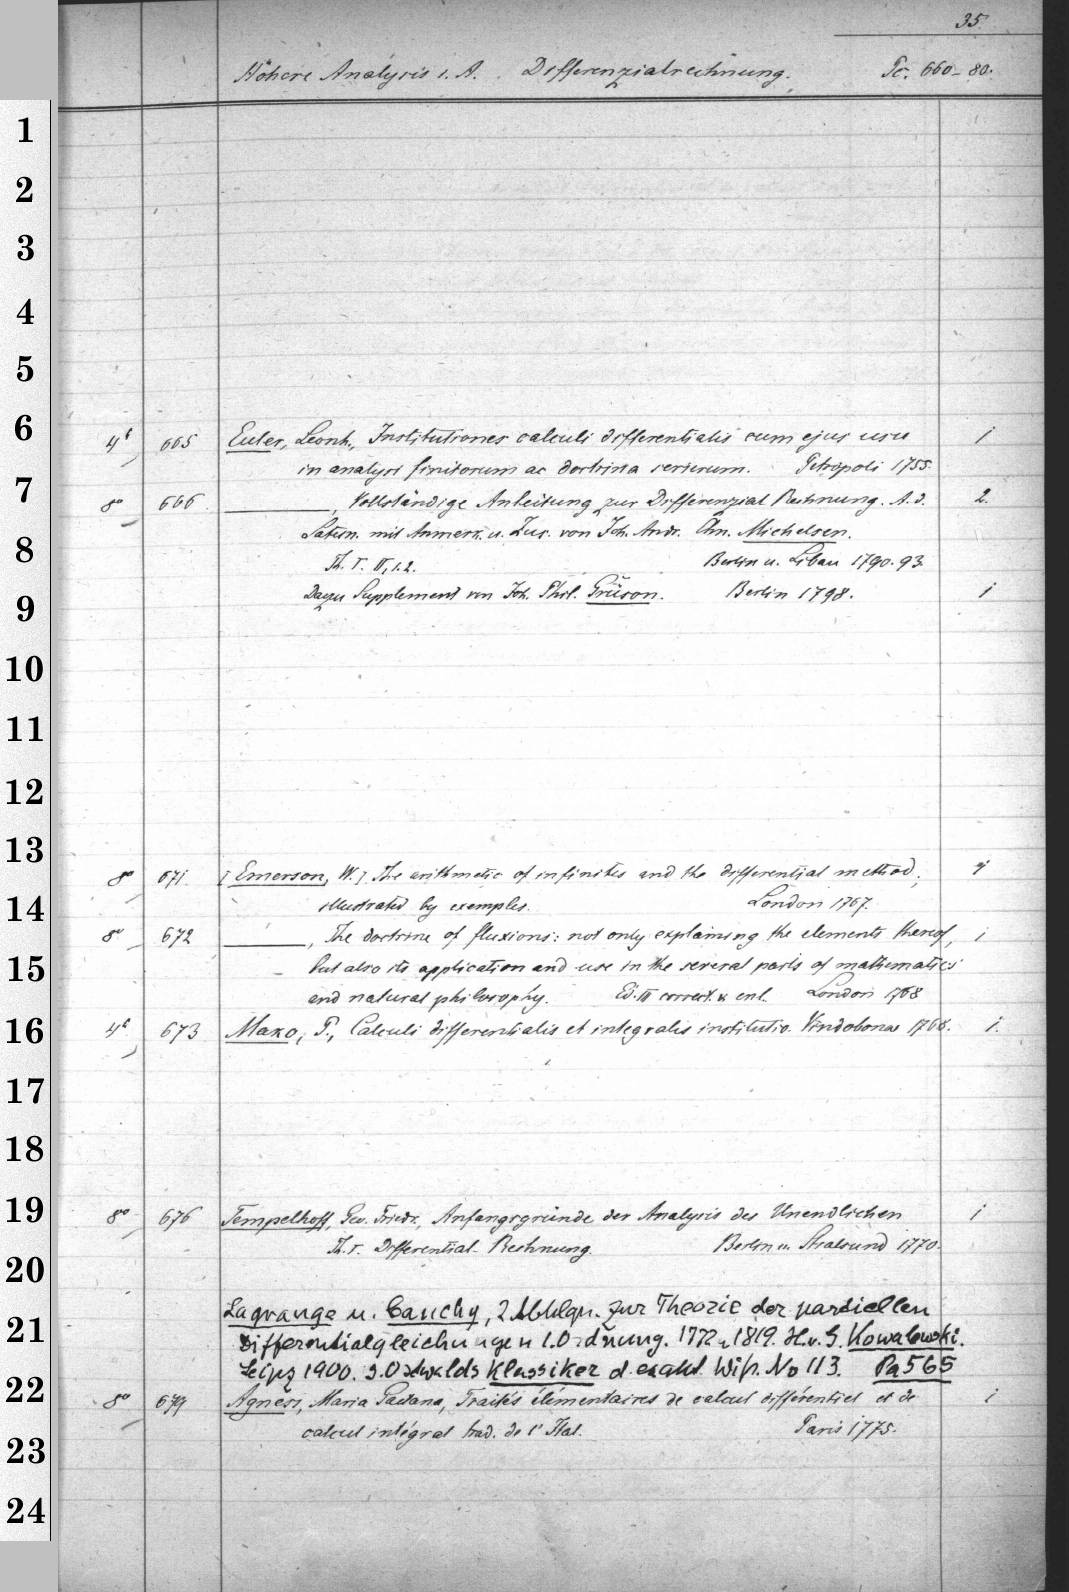 35.
Höhere Analysis i. A. Differenzialrechnung. Pc. 660-80.
1
2
3
4
5
6
4t 665 Euler, Leonh., Institutiones calculi differentialis cum ejus usu 1
in analysi finitorum ac doctrina serierum. Petropoli 1755.
7
8o 666. ———, Vollständige Anleitung zur Differenzial Rechnung. A. d. 2.
Latein. mit Anmerk. u. Zus. von Joh. Andr. Chn. Michelsen.
8
Th. I. II, 1.2. Berlin u. Libau 1790. 93.
9
Dazu Supplement von Joh. Phil. Grüson. Berlin 1798. 1
10
11
12
13
8o 671. [Emerson, W.] The arithmetic of infinites and the differential method,
14
illustrated by exemples. London 1767.
8o 672 ———, The doctrine of fluxions: not only explaining the elements thereof, 1
15
but also its application and use in the several parts of mathematics
and natural philosophy. Ed. III correct. & enl. London 1768
16
4t 673 Mako, P., Calculi differentialis et integralis institutio. Vindobonae 1768. 1.
17
18
19
8o 676 Tempelhoff, Geo. Friedr., Anfangsgründe der Analysis des Unendlichen 1
Th. I. Differential-Rechnung. Berlin u. Stralsund 1770.
20
Lagrange u. Cauchy, 2 Abhdlgn. zur Theorie der partiellen
21
Differentialgleichungen 1. Ordnung. 1772 u. 1819. H. v. G. Kowalewski.
Leipz 1900. s. Ostwalds Klassiker d. exakt. Wiss. No 113. Pa 565
22
8o 679 Agnesi, Maria Gaetana, Traités élémentaires de calcul différentiel et de 1
calcul intégral trad. de l'Ital. Paris 1775.
23
24